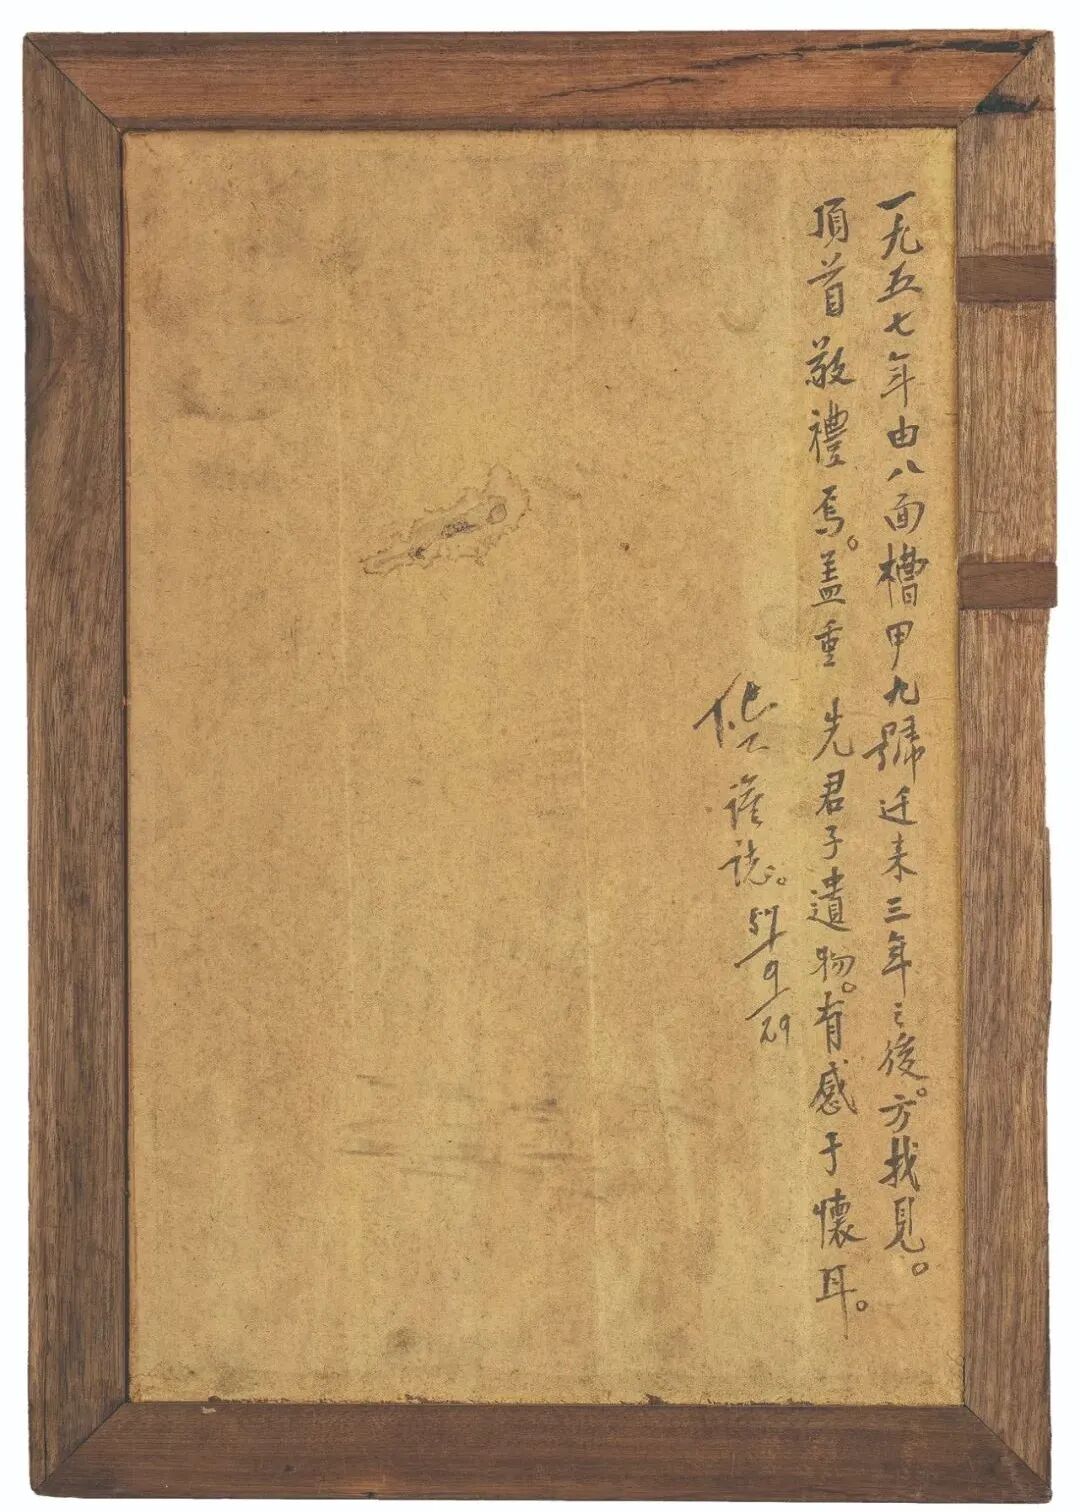 一九五七年由八面槽甲九號迁来三年之後。方找見。
頂首敬禮焉。盖重 先君子遺物。有感于懷耳。
謹誌。57/9/29